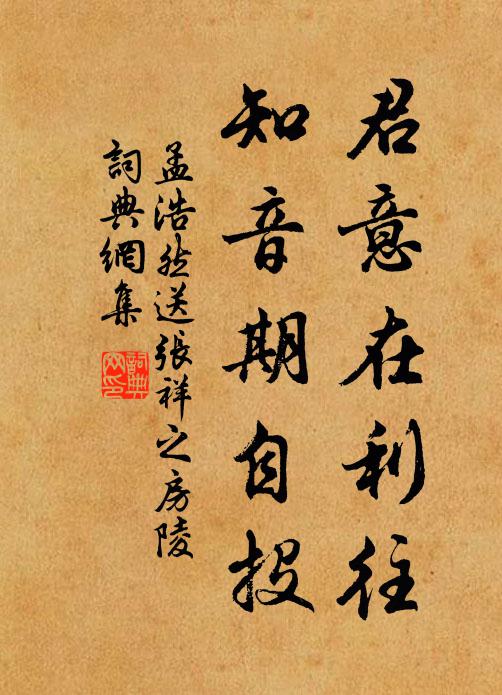 君意在利往
知音期自投
孟浩然送張祥之房陵
詞典網集
詞典網印